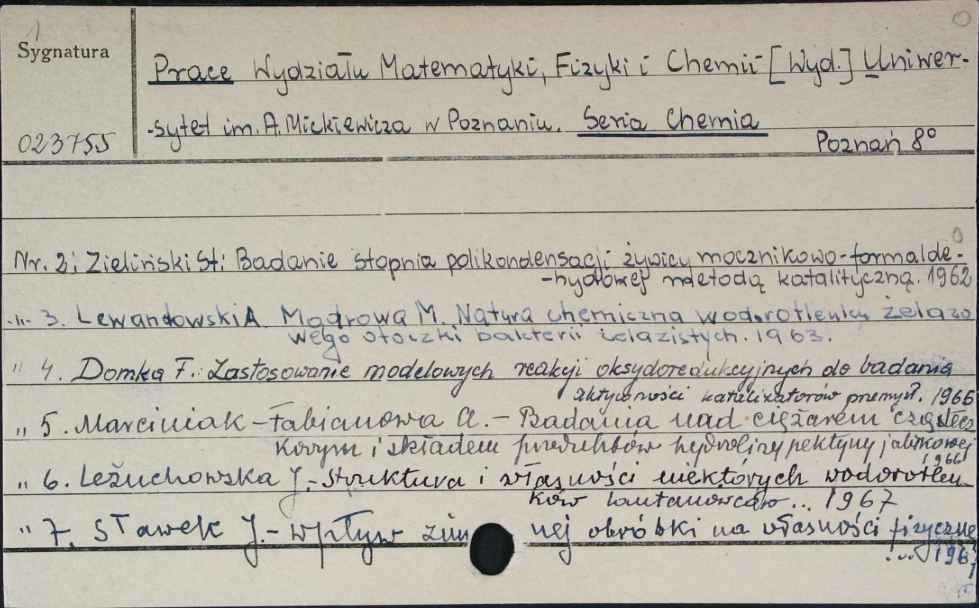 Sygnatura
023755
Prace Wydziału Matematyki, Fizyki i Chemii [Wyd.] Uniwer-
-sytet im. A. Mickiewicza w Poznaniu. Seria Chemia
Poznań 8°
Nr. 2: Zieliński St: Badanie stopnia polikondensacji żywicy mocznikowo-formalde-
-hydowej metodą katalityczną. 1962
-"- 3. Lewandowski A. Mądrowa M. Natura chemiczna wodorotlenku żelazo
wego otoczki bakterii żelazistych. 1963.
" 4. Domka F.: Zastosowanie modelowych reakcji oksydoredukcyjnych do badania
aktywności katalizatorów przemysł. 1966
" 5. Marciniak-Fabianowa A. - Badania nad ciężarem cząstecz
kowym i składem produktów hydrolizy pektyny jabłkowej
1966
" 6. Leżuchowska J. - Struktura i własności niektórych wodorotlen
ków lantanowców... 1967
" 7. Sławek J. - Wpływ nej obróbki na własności fizyczne
... 196